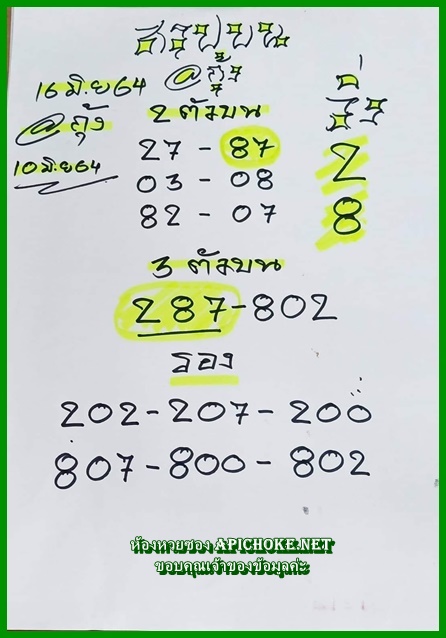 สรุปบน
16 มิ.ย 64 @กุ้ง
@กุ้ง
10 มิ.ย 64
2 ตัวบน
27 - 87
03 - 08
82 - 07
วิ่ง
2
8
3 ตัวบน
287-802
รอง
202-207-200
807-800-802
ห้องหวยซอง APICHOKE.NET
ขอบคุณเจ้าของข้อมูลค่ะ